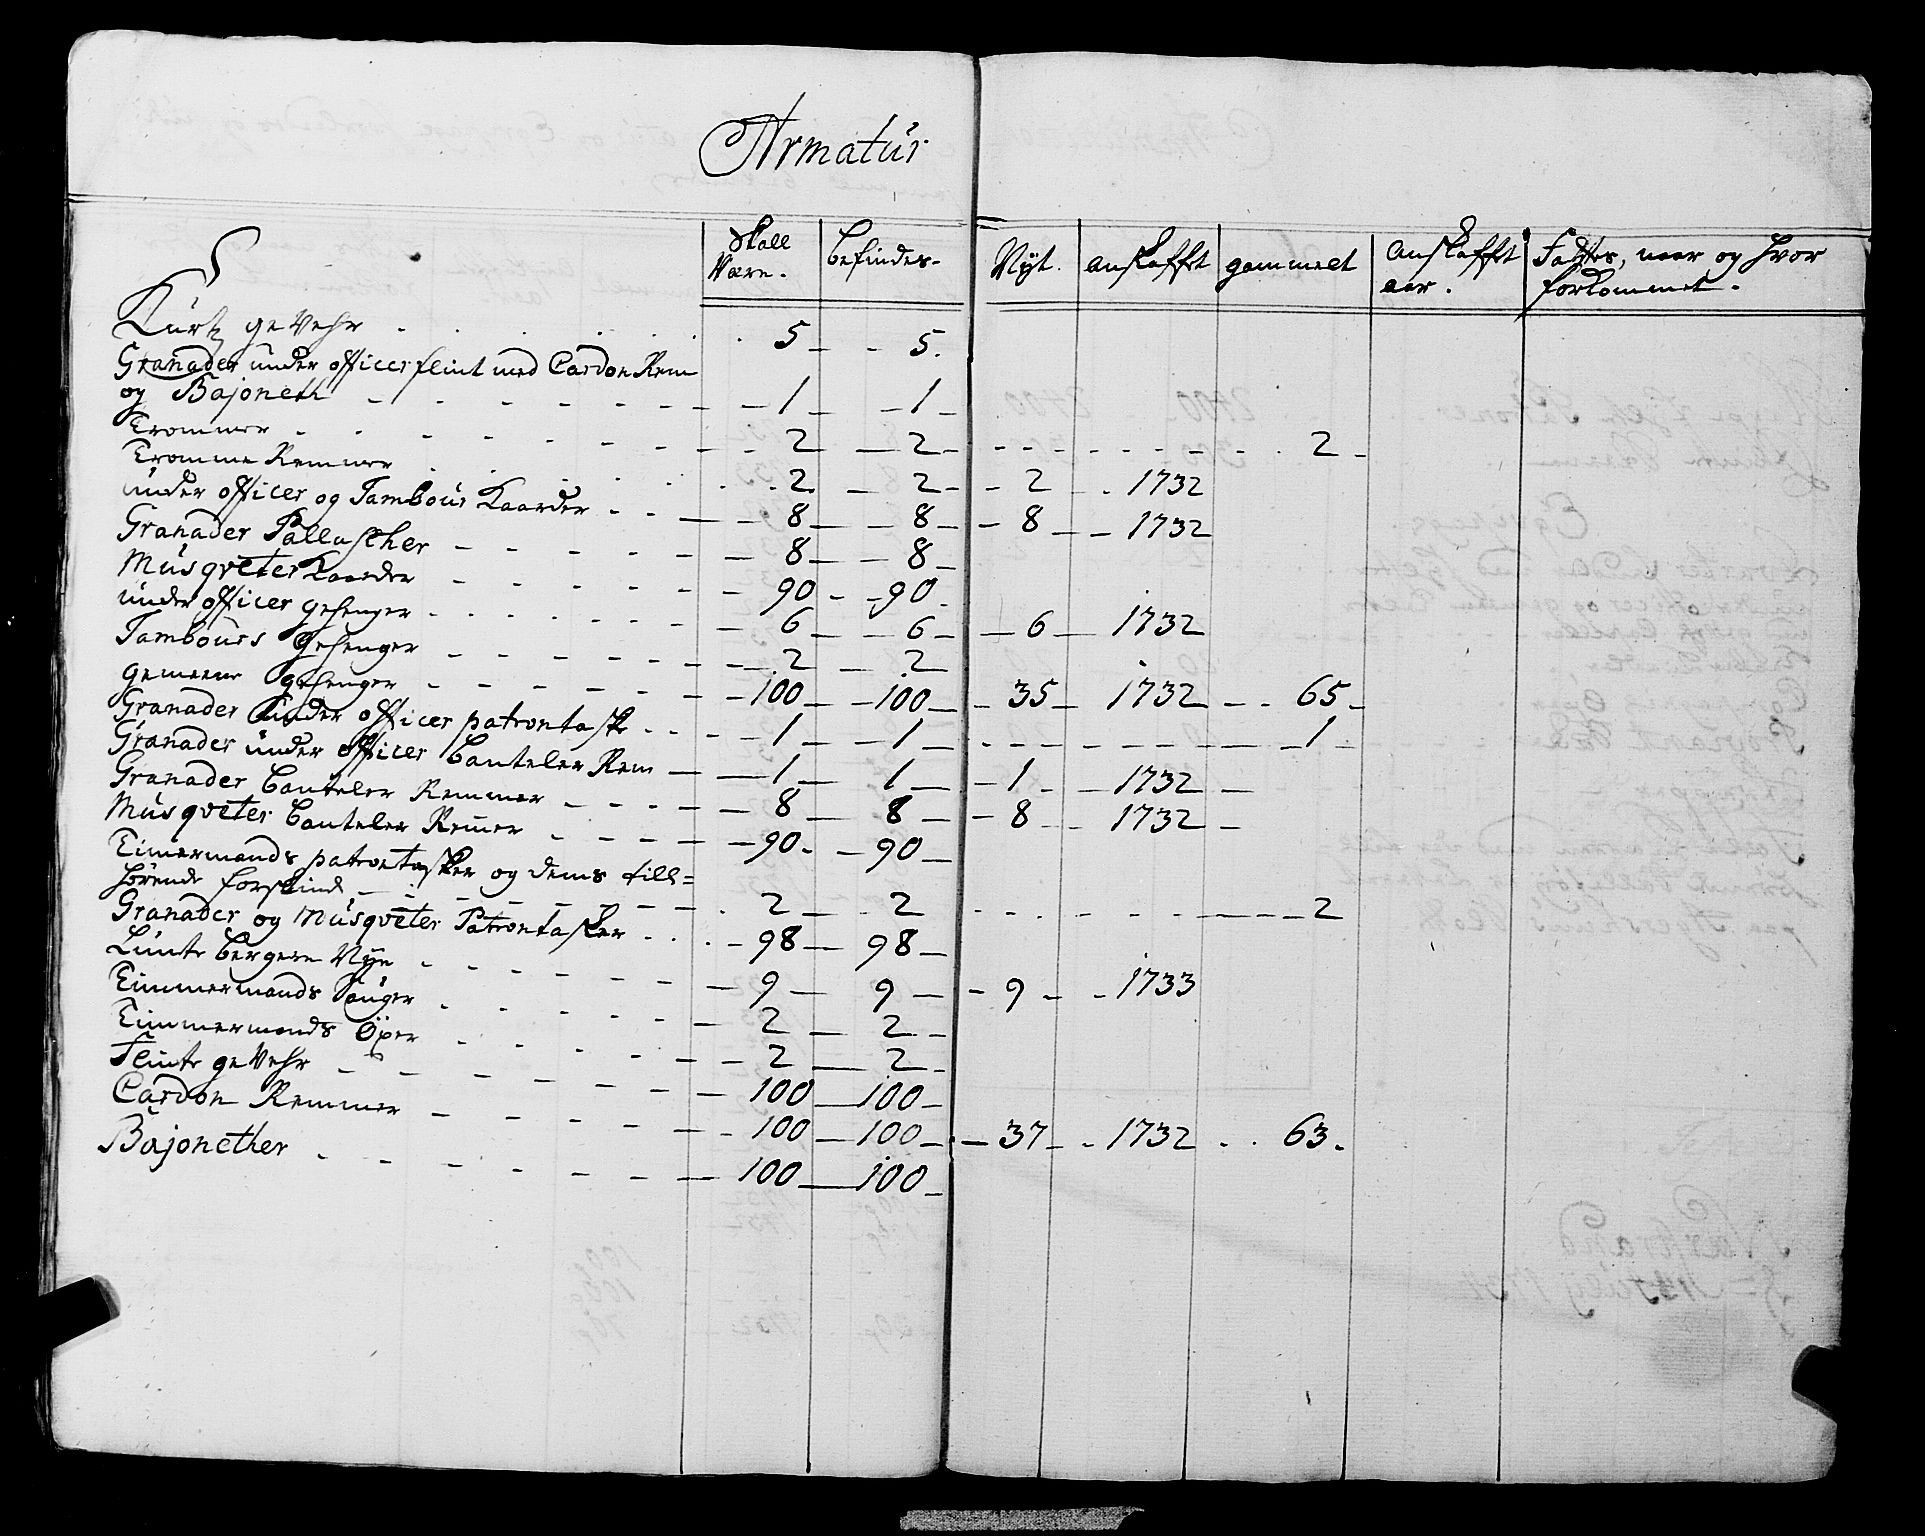 Armatúr
Skall Være. befindes. Nyt. anskafft gammelt anskafft aar. Fattes, naar og hvor forkommet.
Kúrtz geVehr 5 5.
Granader únder officer flint med Cardon Rem
og Bajoneth 1 1
Trommer 2 2 2
Tromme Remmer 2. 2 2 1732
únder officer og Tamboúr Kaarder 8 8 8 1732
Granader Pallascher 8 8
Músqveter Kaarder 90 90
únder officer gehenger 6 6 6 1732
Tamboúrs gehenger 2 2
gemeene gehenger 100 100 35 1732 65
Granader únder officer patrontask 1 1 1
Granader únder officer Banteler Rem 1 1 1 1732
Granader Banteler Remmer 8 8 8 1732
Músqveter Banteler Remer 90 90
Timermands patrontasker og dems till=
hørende forskind 2 2 2
Granader og Músqveter Patrontasker 98 98
Lúnte bergere Nye 9 9 9 1733
Timmermands Sauger 2 2
Timmermands Öxer 2 2
Flinte geVehr 100 100
Cardon Remmer 100 100 37 1732 63
Bajonether 100 100